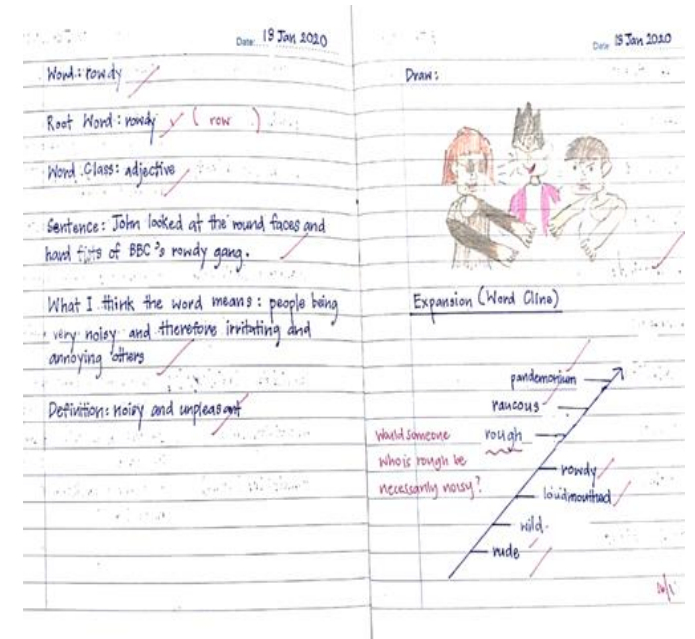 Date: 19 Jan 2020
Word: rowdy
Root Word: rowdy ( row )
Word Class: adjective
Sentence: John looked at the round faces and
hard fists of BBC's rowdy gang.
What I think the word means: people being
very noisy and therefore irritating and
annoying others
Definition: noisy and unpleasant
Date 13 Jan 2020
Draw:
Expansion (Word Cline)
pandemonium
raucous
rough
Would someone
who is rough be
necessarily noisy?
rowdy
loudmouthed
wild
rude